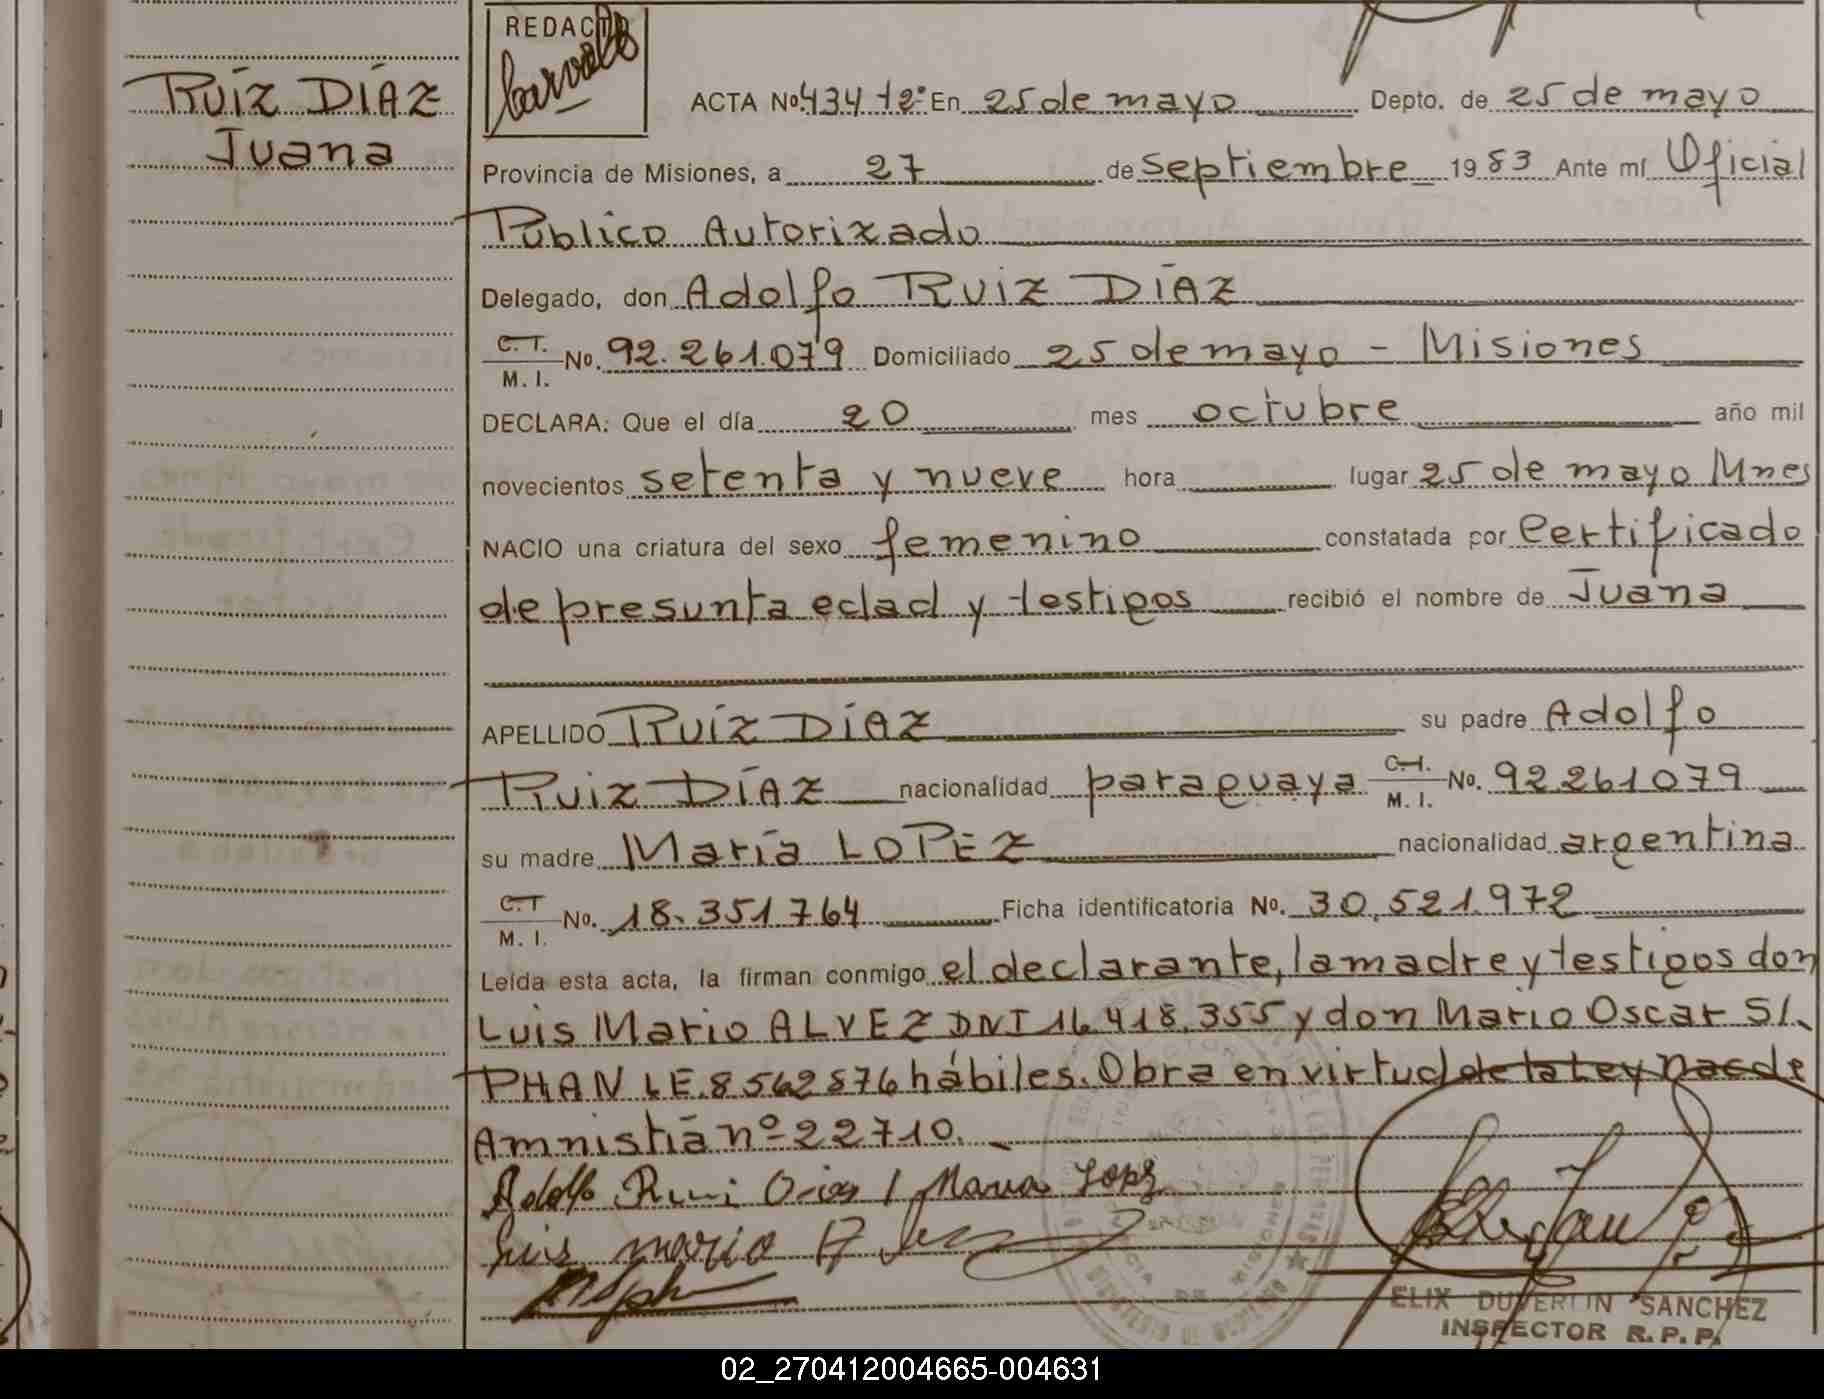 RUíZ DÍAZ
Juana
REDACTO
ACTA Nº 434 tº 2º En 25 de mayo Depto. de 25 de mayo
Provincia de Misiones, a 27 de septiembre 1983 Ante mí Oficial
Público Autorizado
Delegado, don Adolfo RUiZ DÍAZ
C.I. M. I. Nº. 92.261.079 Domiciliado 25 de mayo - Misiones
DECLARA: Que el día 20 mes octubre año mil
novecientos setenta y nueve hora lugar 25 de mayo Mnes
NACIO una criatura del sexo femenino constatada por Certificado
de presunta edad y testigos recibió el nombre de Juana
APELLIDO RUíZ DíAZ su padre Adolfo
RUiZ DÍAZ nacionalidad paraguaya C.I. M. I. Nº. 92.261079
su madre María LOPEZ nacionalidad argentina
C.I. M. I. Nº. 18.351.764 Ficha identificatoria Nº. 30.521.972
Leída esta acta, la firman conmigo el declarante, la madre y testigos don
Luis Mario ALVEZ DNI 16.418.355 y don Mario Oscar SI-
PHAN LE. 8562876 hábiles. Obra en virtud de la Ley Nac de
Amnistía nº 22710.
Maria Lopez
Luis mario
ELIX DUVERLIN SANCHEZ
INSPECTOR R. P. P.
02_270412004665-004631